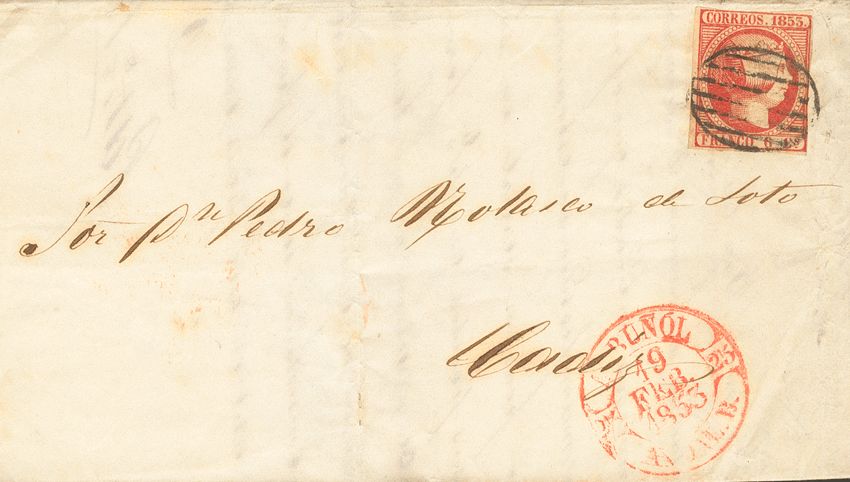 CORREOS. 1853.
FRANCO. 6
Sor Dn Pedro Nolasco de Soto
Cadiz
BUÑOL
25
19
FEB.
1853